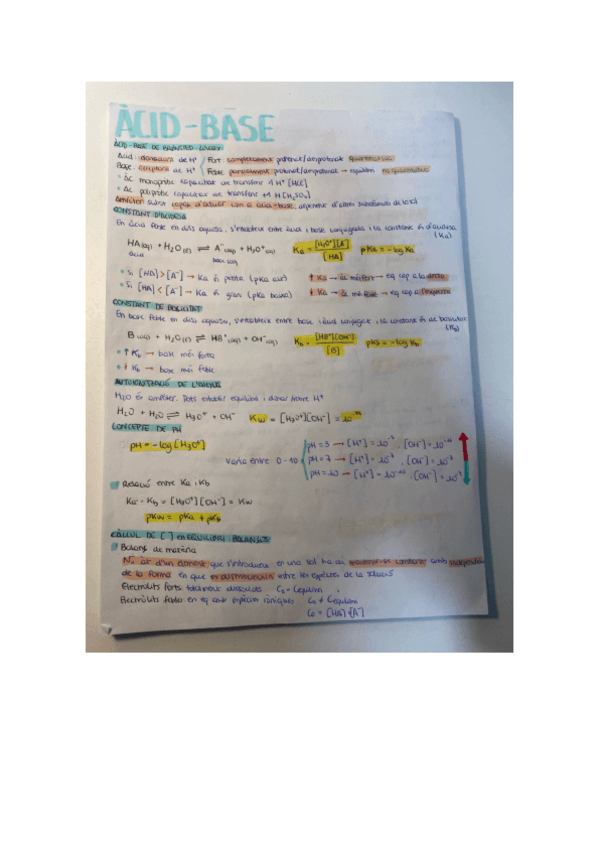 ÀCID-BASE
ÀCID-BASE DE BRONSTED-LOWRY
Àcid: donadora de H⁺ Fort: completament protonat/desprotonat quantitativa
Base: acceptora de H⁺ Feble: parcialment protonat/desprotonat → equilibri no quantitativa
Àc monopròtic capacitat de transferir 1 H⁺ [HCl]
Àc polipròtic capacitat de transferir +1 H [H₂SO₄]
Amfòter: subst capaç d'actuar com a àcid-base, depenent d'altres substàncies de la sol
CONSTANT D'ACIDESA
En àcid feble en diss aquosa, s'estableix entre àcid i base conjugada i la constant és d'acidesa
(Ka)
HA(aq) + H₂O(l) ⇌ A⁻(aq) + H₃O⁺(aq) Ka = [H₃O⁺][A⁻] / [HA] pKa = -log Ka
àcid base conj
Si [HA] > [A⁻] → Ka és petita (pKa alt) ↑ Ka → àc més fort → eq cap a la dreta
Si [HA] < [A⁻] → Ka és gran (pKa baixa) ↓ Ka → àc més feble → eq cap a l'esquerra
CONSTANT DE BASICITAT
En base feble en diss aquosa, s'estableix entre base i àcid conjugat i la constant és de basicitat
(Kb)
B(aq) + H₂O(l) ⇌ HB⁺(aq) + OH⁻(aq) Kb = [HB⁺][OH⁻] / [B] pKb = -log Kb
↑ Kb → base més forta
↓ Kb → base més feble
AUTOIONITZACIÓ DE L'AIGUA
H₂O és amfòter. Pot establir equilibri i donar
H₂O + H₂O ⇌ H₃O⁺ + OH⁻ Kw = [H₃O⁺][OH⁻] = 10⁻¹⁴
CONCEPTE DE PH
pH = -log [H₃O⁺]
pH = 3 → [H⁺] = 10⁻³, [OH⁻] = 10⁻¹¹
varia entre 0-10 pH = 7 → [H⁺] = 10⁻⁷, [OH⁻] = 10⁻⁷
pH = 10 → [H⁺] = 10⁻¹⁰, [OH⁻] = 10⁻⁴
Relació entre Ka i Kb
Ka · Kb = [H₃O⁺][OH⁻] = Kw
pKw = pKa + pKb
CÀLCUL DE [ ] en EQUILIBRI BALANÇOS
Balanç de matèria
Nº àt d'un element que s'introdueix en una sol ha de mantenir-se constant amb independència
de la forma en que es distribueixin entre les espècies de la solució
Electròlits forts totalment dissociats C₀ = Cequilibri
Electròlits febles en eq amb espècies iòniques C₀ ≠ Cequilibri
C₀ = [HA] + [A⁻]